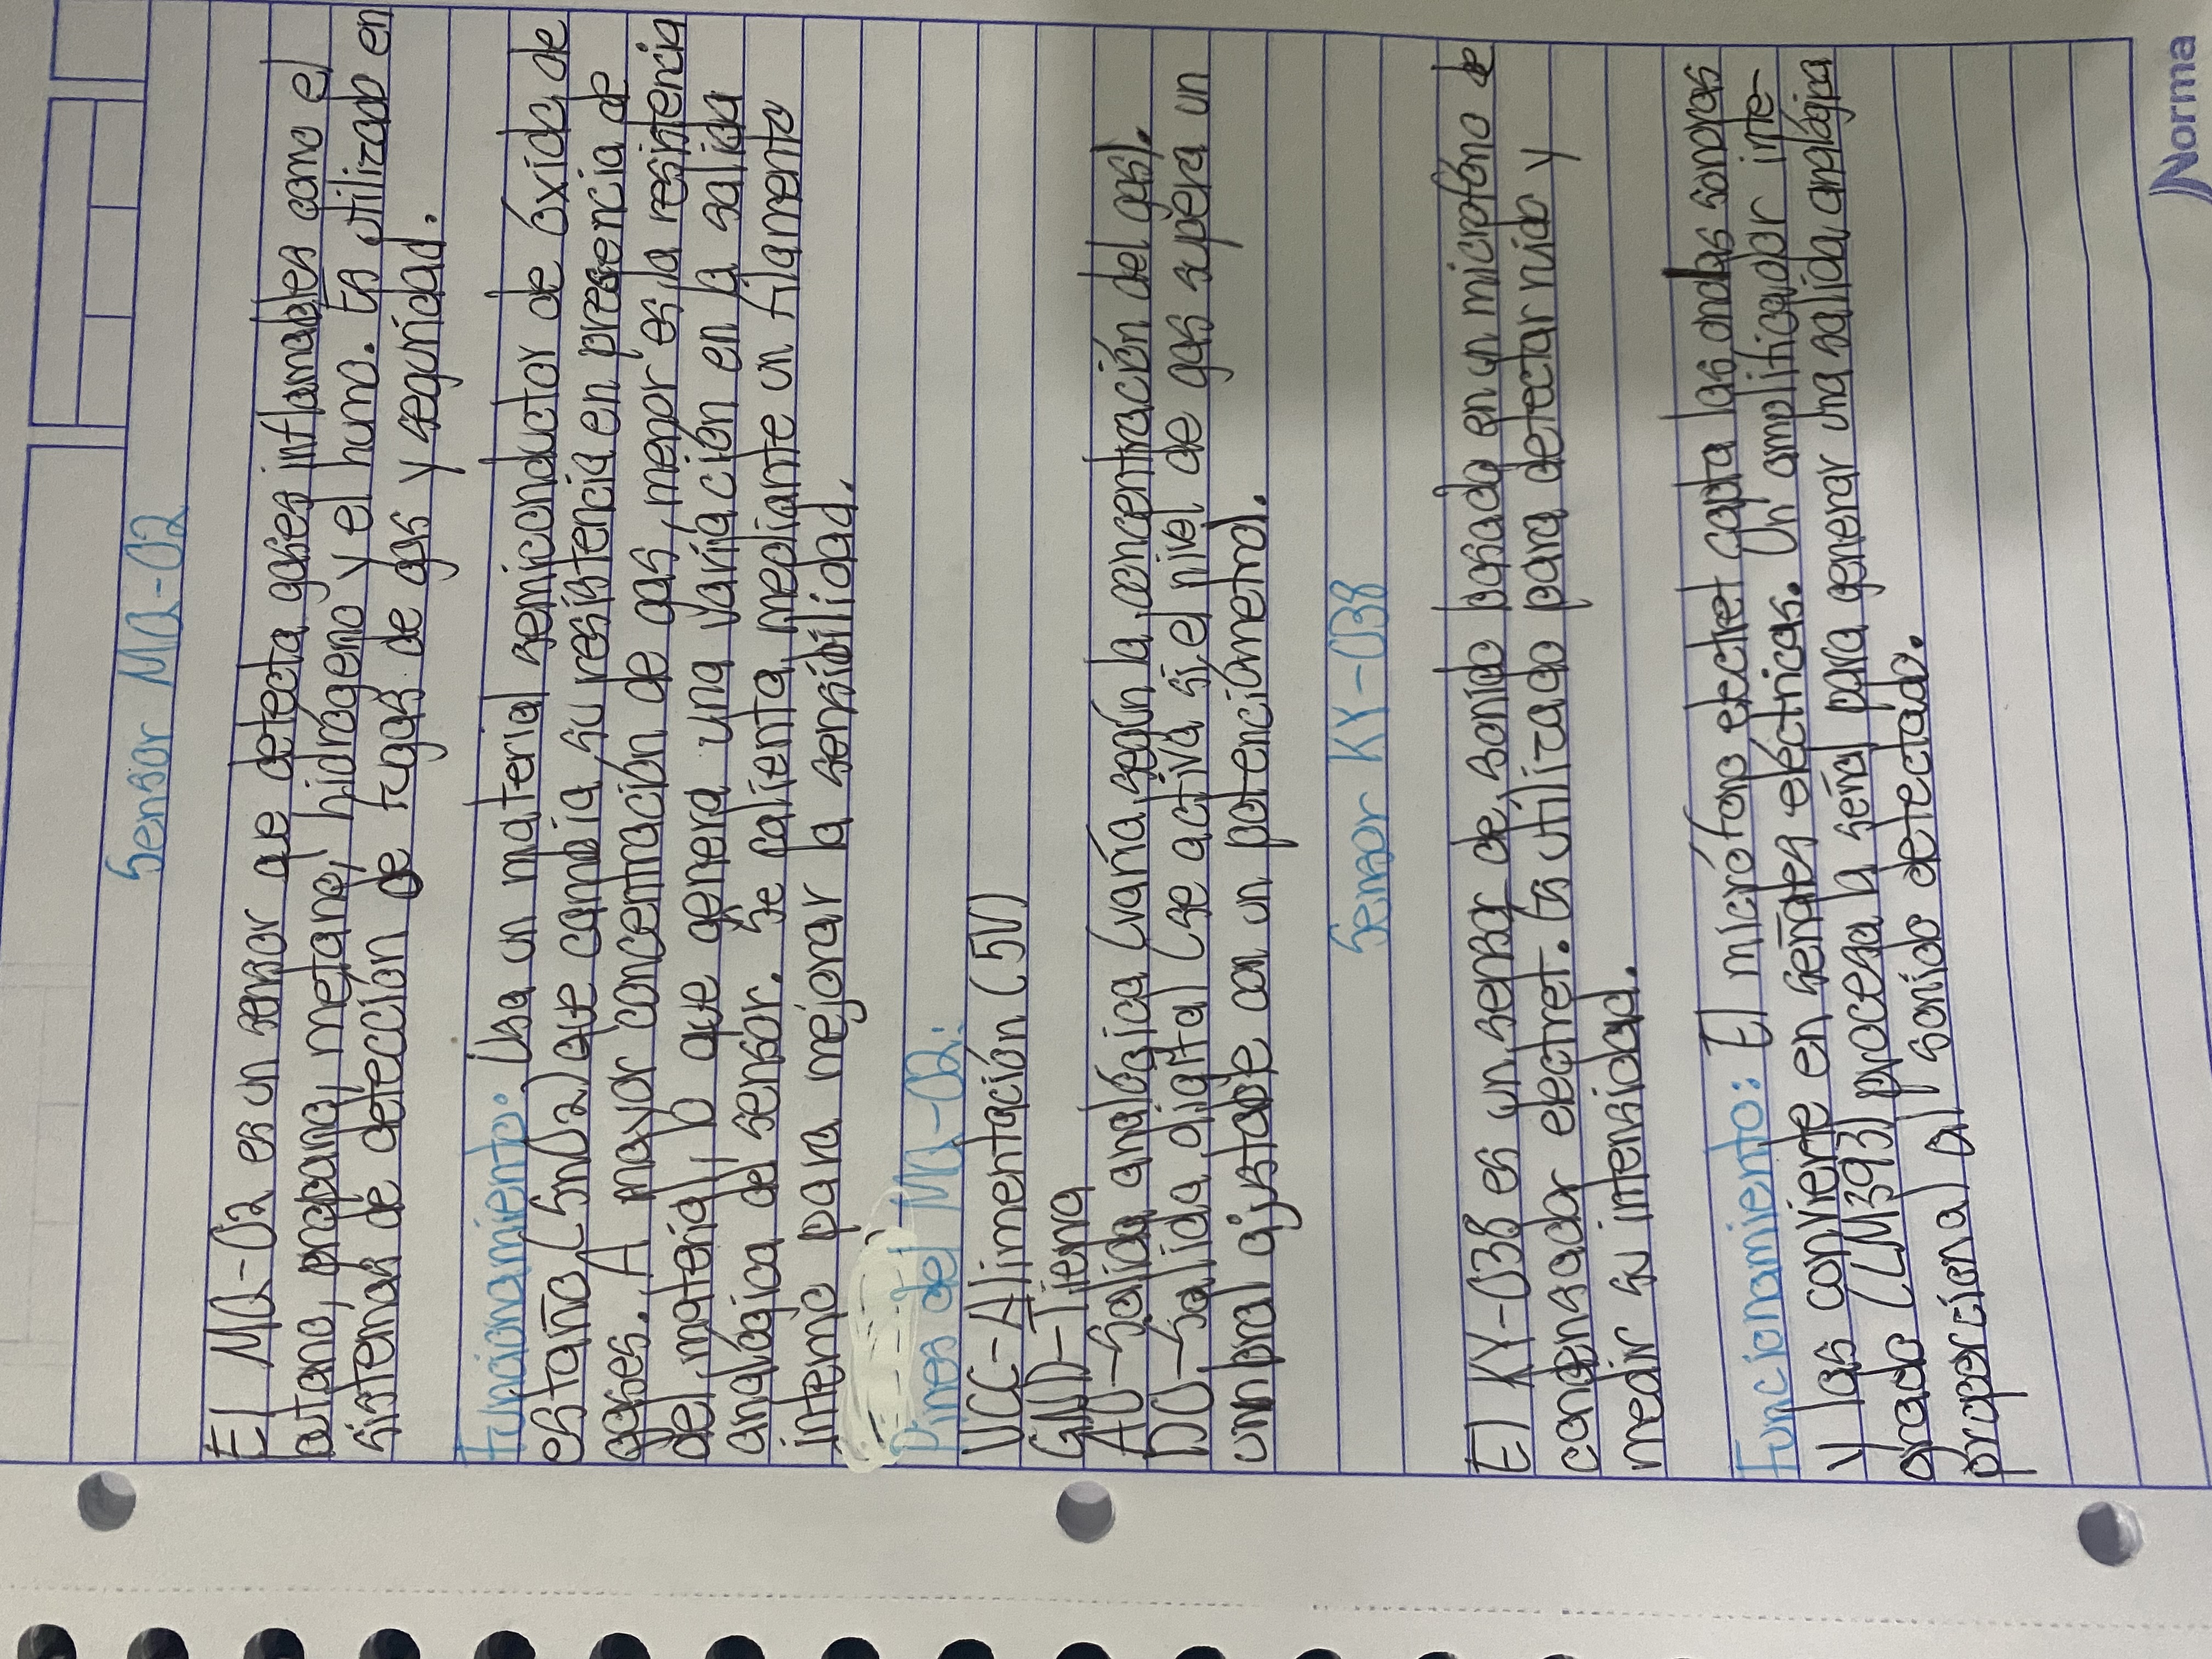 Sensor MQ-02
El MQ-02 es un sensor que detecta gases inflamables como el
butano, propano, metano, hidrógeno y el humo. Es utilizado en
sistemas de detección de fugas de gas y seguridad.
Funcionamiento: Usa un material semiconductor de óxido de
estaño (SnO2) que cambia su resistencia en presencia de
gases. A mayor concentración de gas, menor es la resistencia
del material, lo que genera una variación en la salida
analógica del sensor. Se calienta mediante un filamento
interno para mejorar la sensibilidad.
Pines del MQ-02:
VCC-Alimentación (5V)
GND-Tierra
AO-Salida analógica (varía según la concentración del gas).
DO-Salida digital (se activa si el nivel de gas supera un
umbral ajustable con un potenciómetro).
Sensor KY-038
El KY-038 es un sensor de sonido basado en un micrófono de
condensador electret. Es utilizado para detectar ruido y
medir su intensidad.
Funcionamiento: El micrófono electret capta las ondas sonoras
y las convierte en señales eléctricas. Un amplificador inte-
grado (LM393) procesa la señal para generar una salida analógica
proporcional al sonido detectado.
Norma